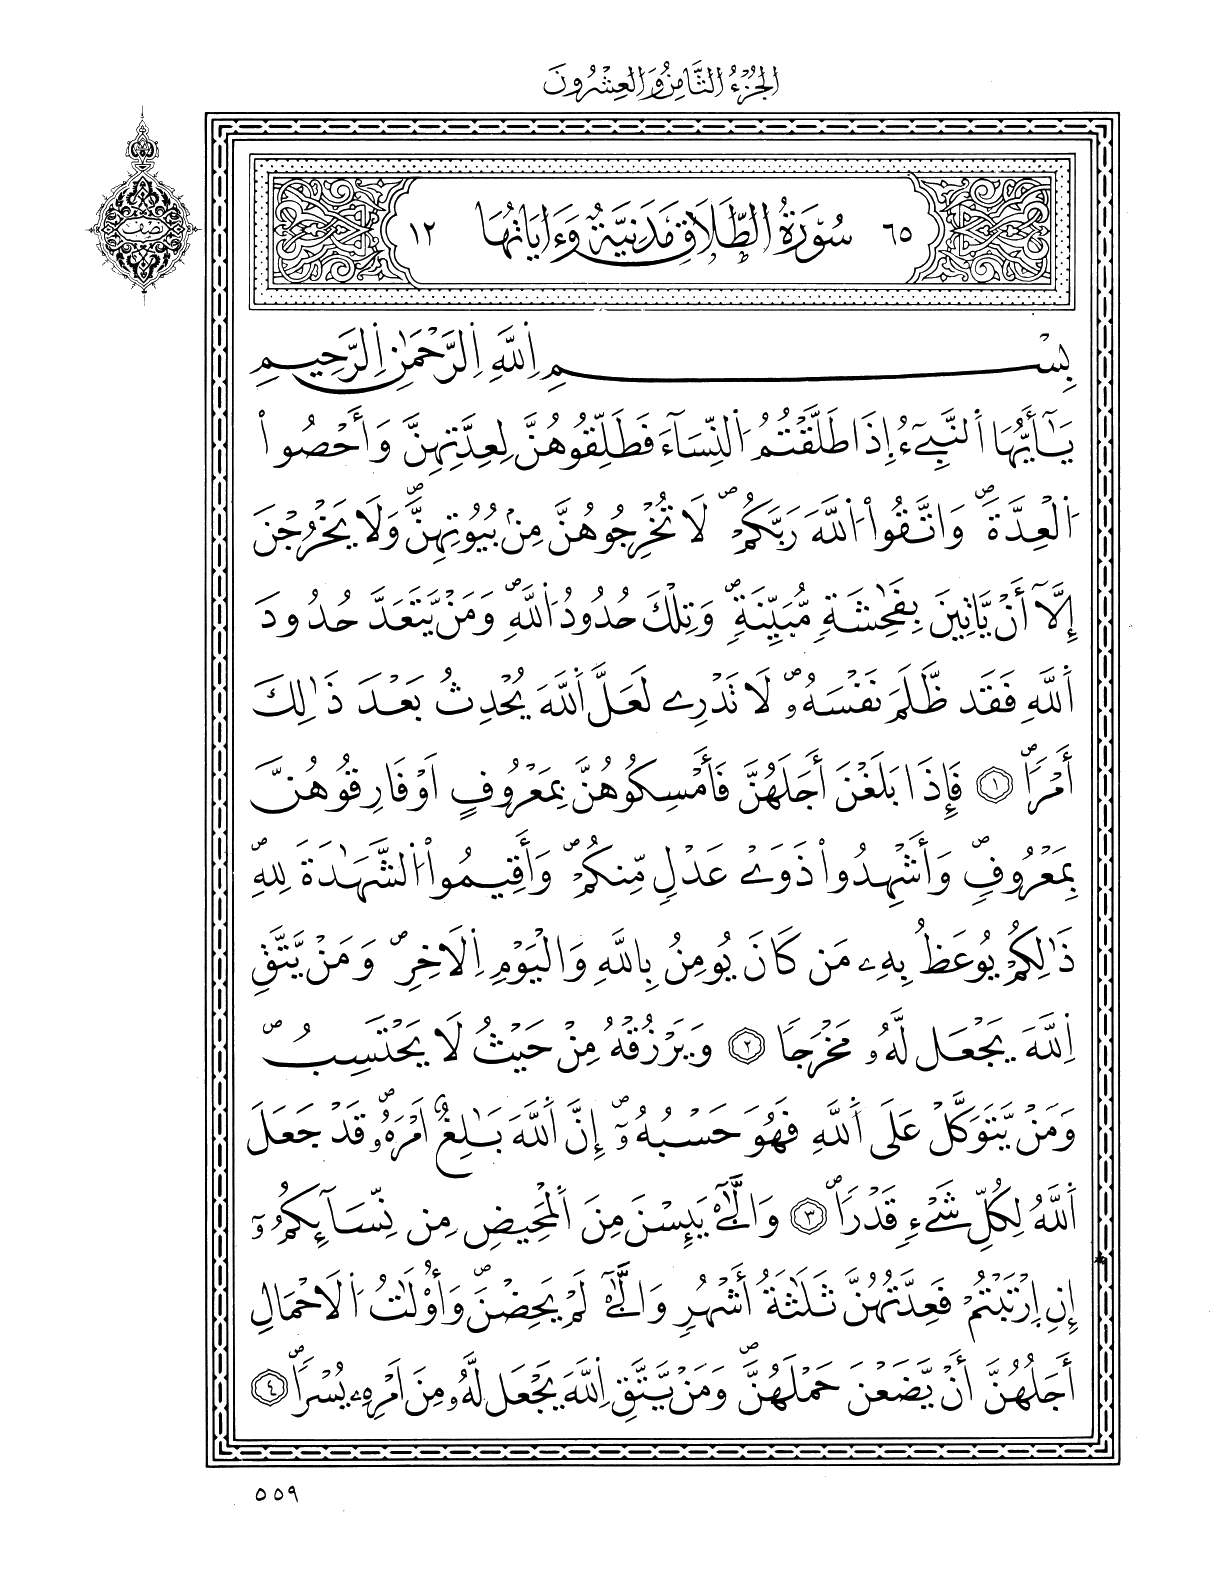 الجُزْءُ الثَّامِنُ وَالعِشْرُونَ
نصف
٦٥ سُورَةُ الطَّلَاقِ مَدَنِيَّةٌ وَءَايَاتُهَا ١٢
بِسْمِ اِ۬للَّهِ اِ۬لرَّحْمَٰنِ اِ۬لرَّحِيمِ
يَٰٓأَيُّهَا اَ۬لنَّبِےٓءُ اِذَا طَلَّقْتُمُ اُ۬لنِّسَآءَ فَطَلِّقُوهُنَّ لِعِدَّتِهِنَّ وَأَحْصُواْ
اُ۬لْعِدَّةَۖ وَاتَّقُواْ اُ۬للَّهَ رَبَّكُمْۖ لَا تُخْرِجُوهُنَّ مِنۢ بُيُوتِهِنَّۖ وَلَا يَخْرُجْنَ
إِلَّآ أَنْ يَّاتِينَ بِفَٰحِشَةٖ مُّبَيِّنَةٖۖ وَتِلْكَ حُدُودُ اُ۬للَّهِۖ وَمَنْ يَّتَعَدَّ حُدُودَ
اَ۬للَّهِ فَقَد ظَّلَمَ نَفْسَهُۥۖ لَا تَدْرِے لَعَلَّ اَ۬للَّهَ يُحْدِثُ بَعْدَ ذَٰلِكَ
أَمْراٗۖ ١ فَإِذَا بَلَغْنَ أَجَلَهُنَّ فَأَمْسِكُوهُنَّ بِمَعْرُوفٍ اَوْ فَارِقُوهُنَّ
بِمَعْرُوفٖۖ وَأَشْهِدُواْ ذَوَےْ عَدْلٖ مِّنكُمْۖ وَأَقِيمُواْ اُ۬لشَّهَٰدَةَ لِلهِۖ
ذَٰلِكُمْ يُوعَظُ بِهِۦ مَن كَانَ يُومِنُ بِاللَّهِ وَالْيَوْمِ اِ۬لَاخِرِۖ وَمَنْ يَّتَّقِ
اِ۬للَّهَ يَجْعَل لَّهُۥ مَخْرَجاٗ ٢ وَيَرْزُقْهُ مِنْ حَيْثُ لَا يَحْتَسِبُۖ
وَمَنْ يَّتَوَكَّلْ عَلَى اَ۬للَّهِ فَهُوَ حَسْبُهُۥٓۖ إِنَّ اَ۬للَّهَ بَٰلِغٌ اَمْرَهُۥۖ قَدْ جَعَلَ
اَ۬للَّهُ لِكُلِّ شَےْءٖ قَدْراٗۖ ٣ وَالَّٰٓے يَئِسْنَ مِنَ اَ۬لْمَحِيضِ مِن نِّسَآئِكُمُۥٓ
إِنِ اِ۪رْتَبْتُمْ فَعِدَّتُهُنَّ ثَلَٰثَةُ أَشْهُرٖ وَالَّٰٓے لَمْ يَحِضْنَۖ وَأُوْلَٰتُ اُ۬لَاحْمَالِ
أَجَلُهُنَّ أَنْ يَّضَعْنَ حَمْلَهُنَّۖ وَمَنْ يَّتَّقِ اِ۬للَّهَ يَجْعَل لَّهُۥ مِنَ اَمْرِهِۦ يُسْراٗۖ ٤
٥٥٩